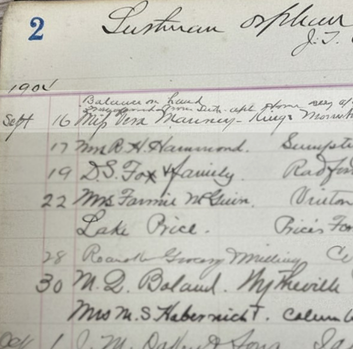 2 Lutheran Orphan
J. T.
1904
Balance on hand
Sept 16 Miss Vera Mauney - Kings Mount
17 Mrs R. H. Hammond. Sumpte
19 D. S. Fox & family. Radfor
22 Mrs. Fannie McGuin. Vinton
Lake Price. Price's Fo
28 Roanoke Grocery & Milling Co
30 M. D. Boland. Wytheville
Mrs M. S. Habernicht. Columb
Oct 1 J. M.